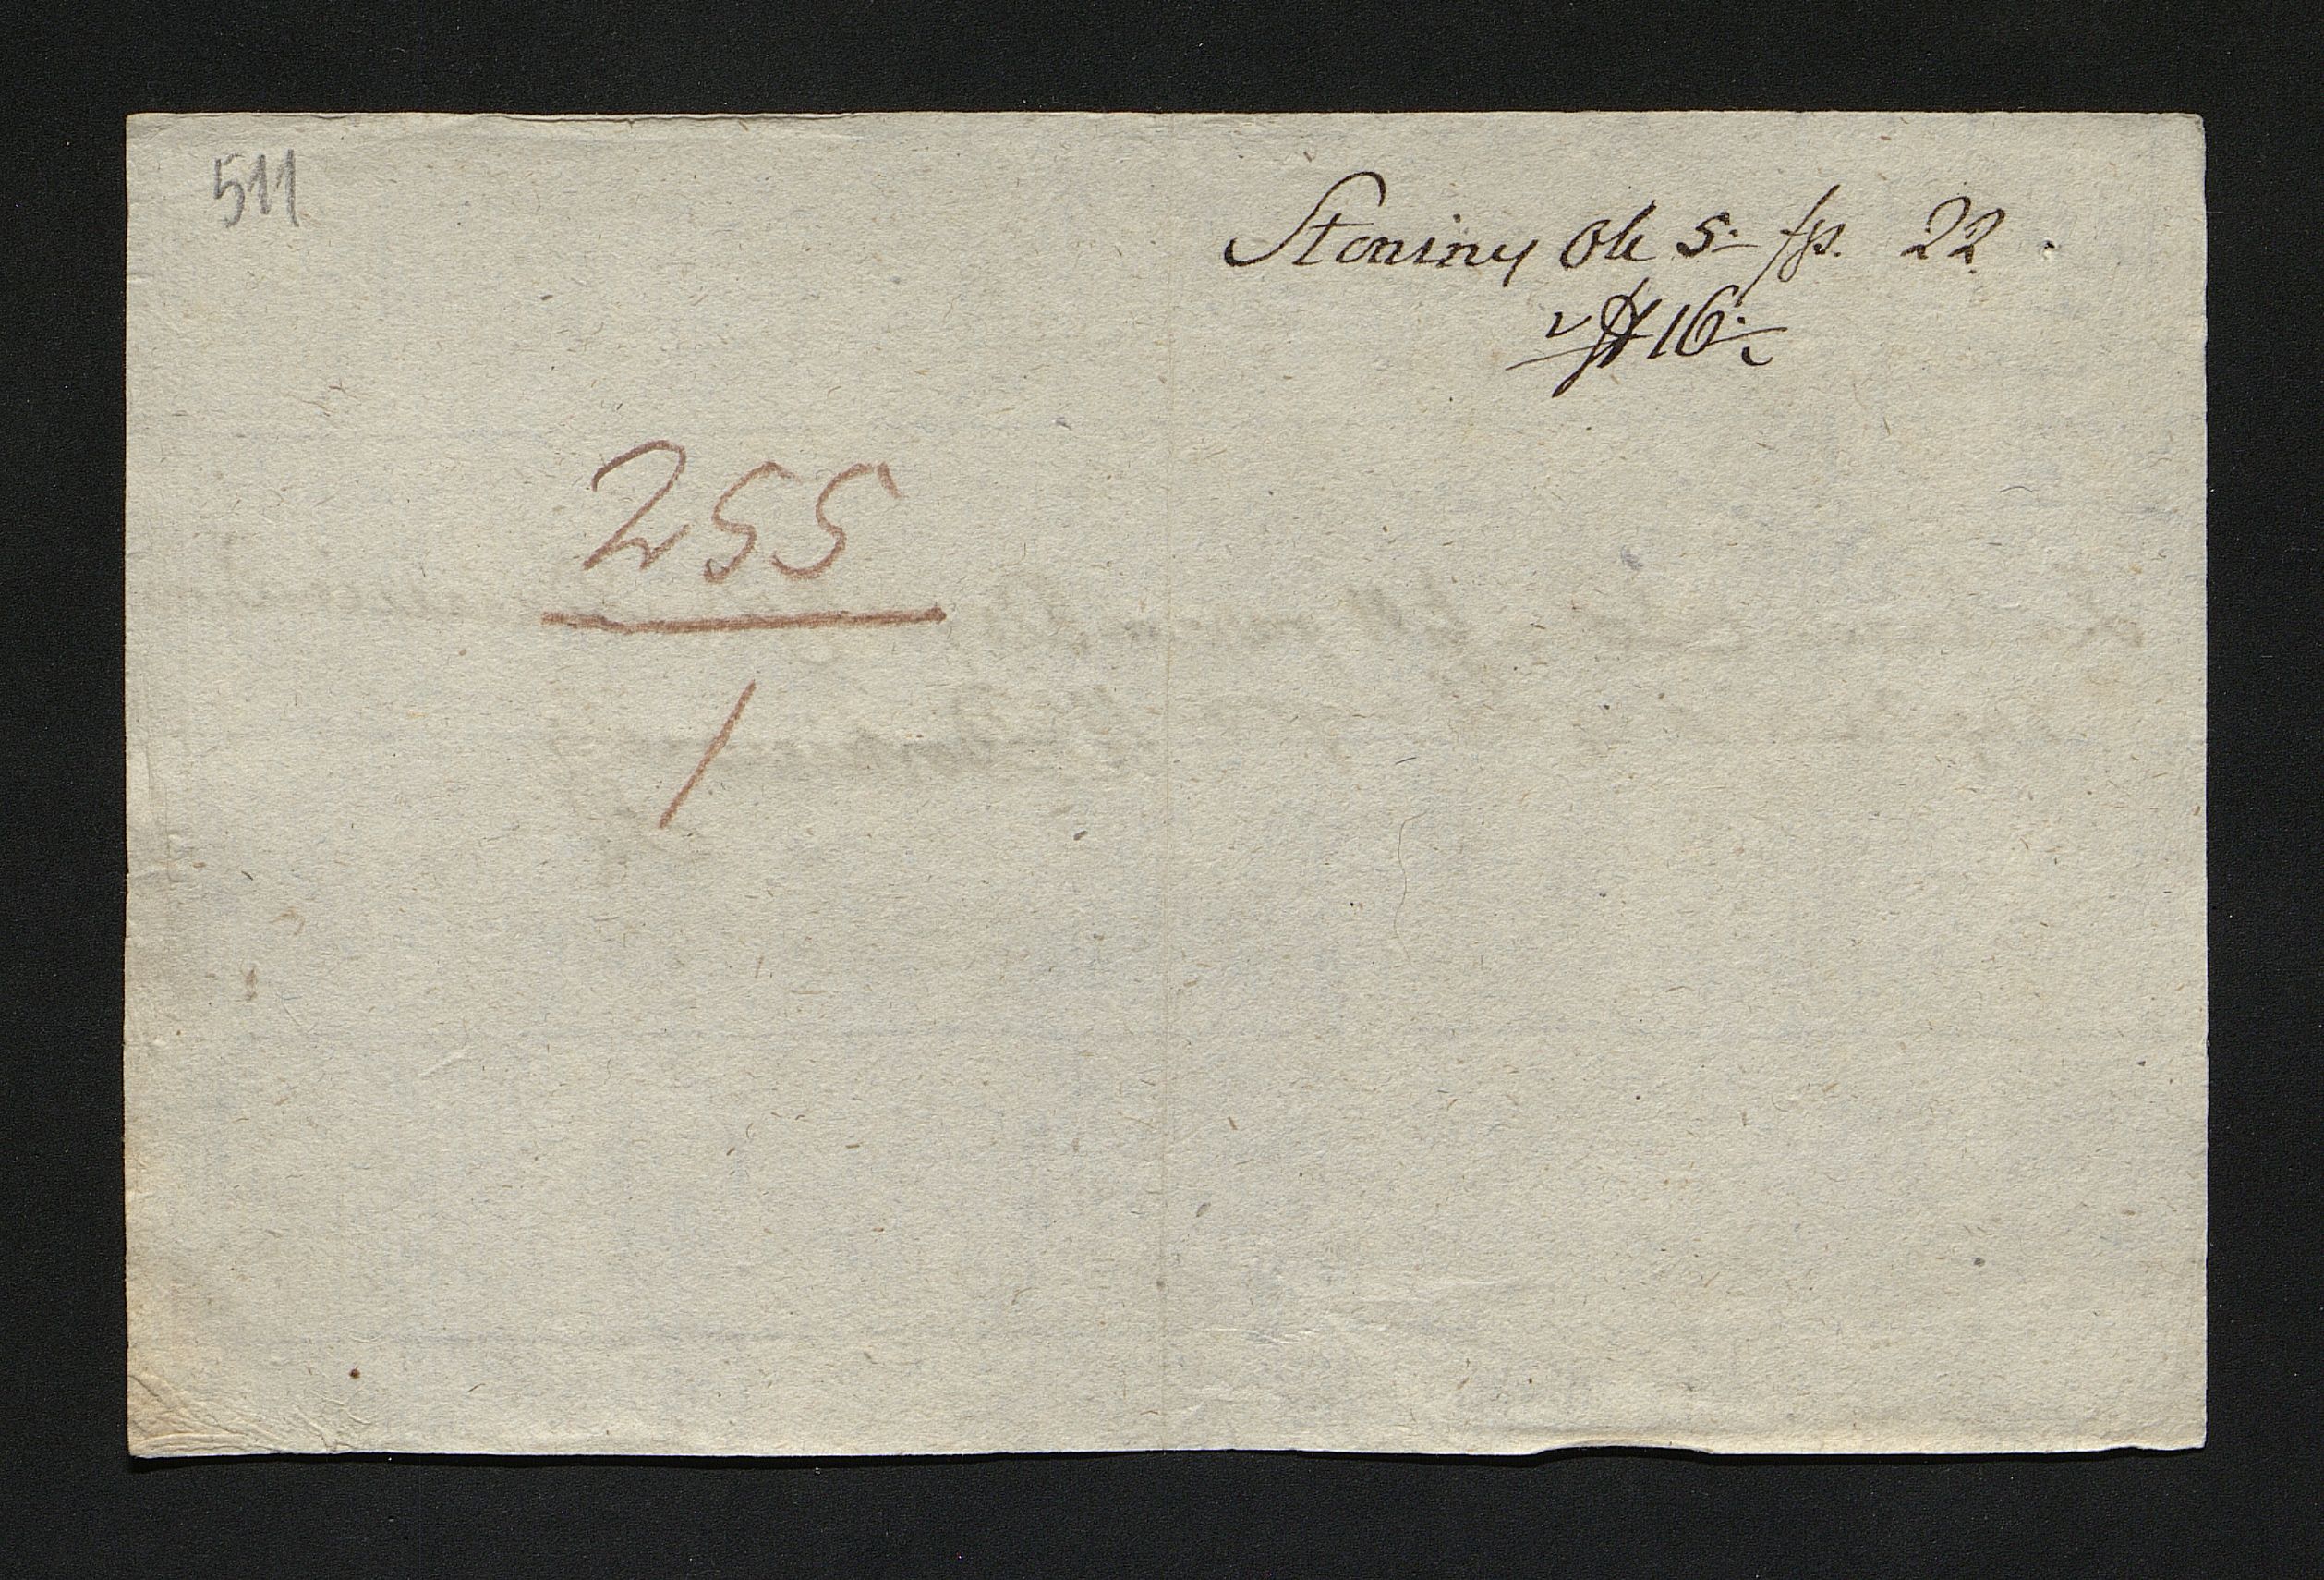 511
Słoniny ok 5. fp. 22.
N 16.
255
1